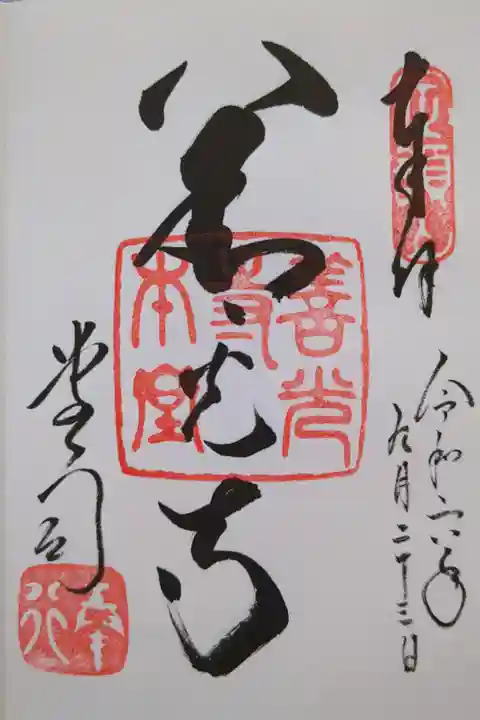 奉拝
令和六年
九月二十三日
善光寺
善光
寺
本堂
堂司
奉行